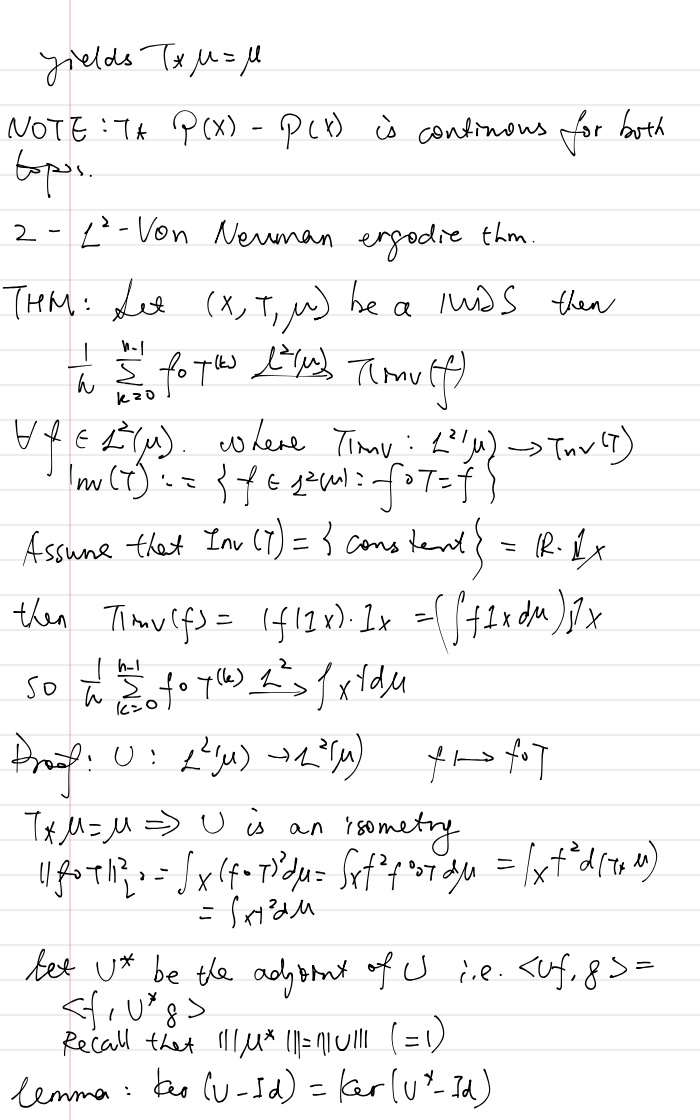 yields T* μ = μ
NOTE : T* P(X) - P(X) is continous for both
topos.
2 - L² - Von Neuman ergodic thm.
THM: Let (X, T, μ) be a MDS then
1/n Σ_{k=0}^{n-1} f∘T^(k) →^{L²(μ)} Πinv(f)
∀ f ∈ L²(μ). where Πinv : L²(μ) → Inv(T)
Inv(T) := { f ∈ L²(μ) : f∘T = f }
Assume that Inv(T) = { constent } = ℝ·1_X
then Πinv(f) = (f|1_X)·1_X = (∫f1_X dμ)1_X
so 1/n Σ_{k=0}^{n-1} f∘T^(k) →^{L²} ∫_X f dμ
Proof: U : L²(μ) → L²(μ) f ↦ f∘T
T* μ = μ ⇒ U is an isometry
||f∘T||²_{L²} = ∫_X (f∘T)² dμ = ∫_X f² f∘T dμ = ∫_X f² d(T* μ)
= ∫_X f² dμ
Let U* be the adjoint of U i.e. <Uf, g> =
<f, U* g>
Recall that |||μ*||| = |||U||| (=1)
Lemma : ker (U - Id) = ker (U* - Id)